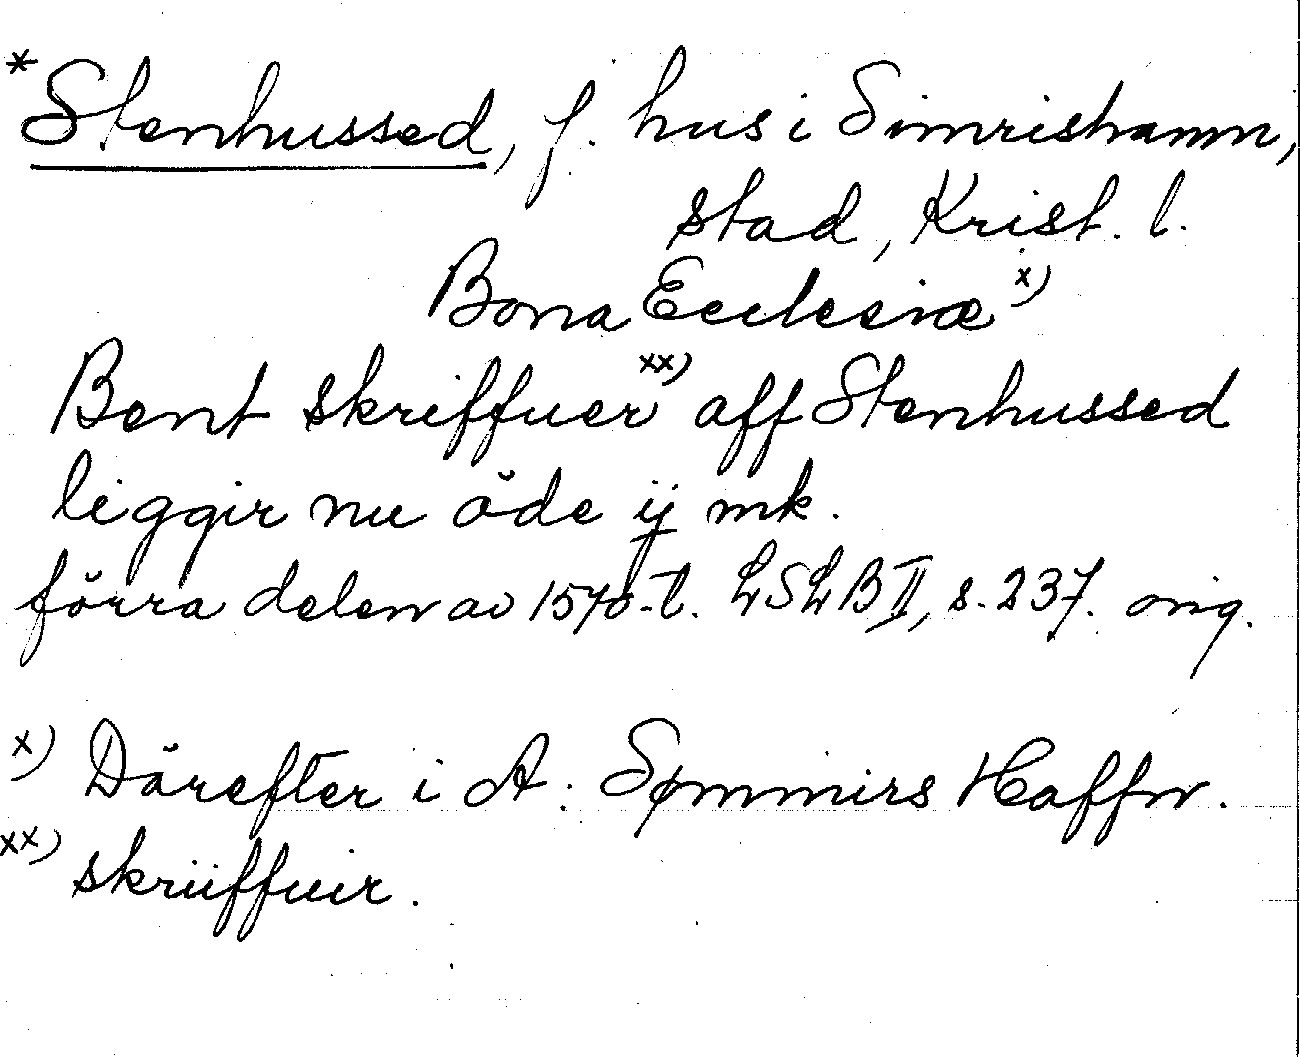 *Stenhussed, f. hus i Simrishamn,
stad, Krist. l.
Bona Ecclesiæ x)
Bent skriffuer xx) aff Stenhussed
liggir nu öde ij mk.
förra delen av 1570-t. LSLB II, s. 237. orig.
x) Därefter i A: Sømmirs Haffn.
xx) skriiffuir.